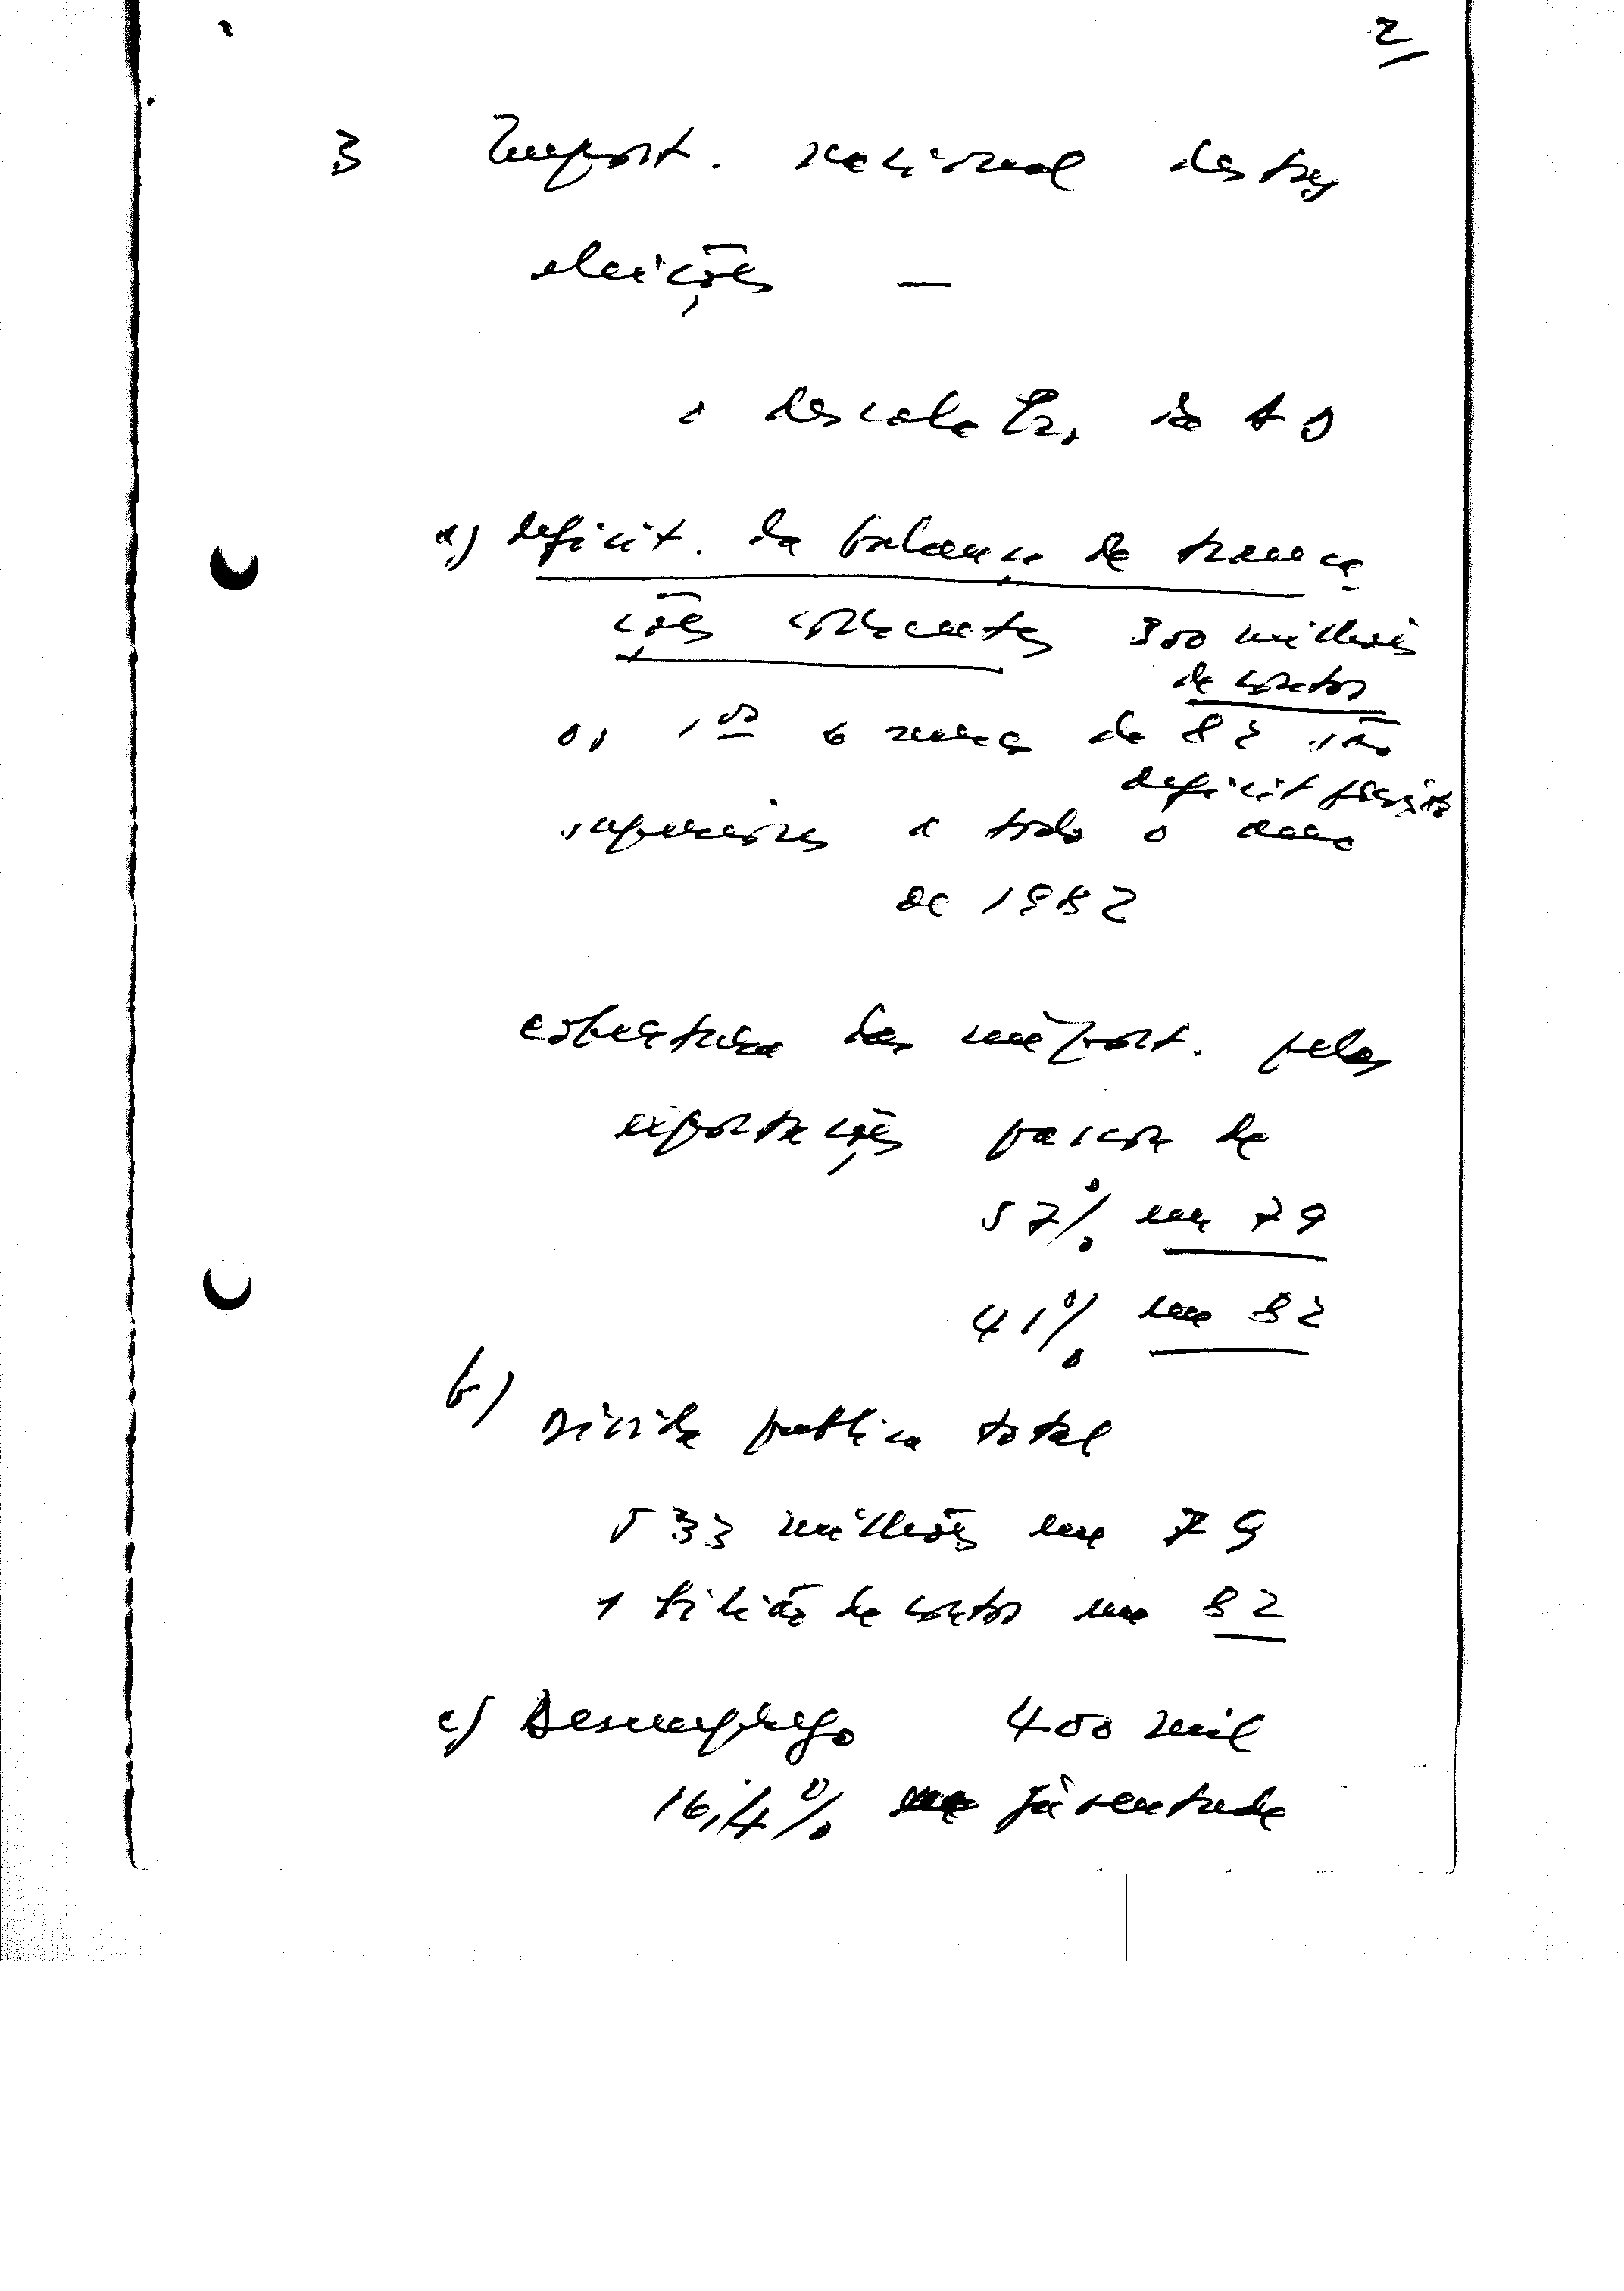 2/
3 Import. nacional destas
eleições —
o descalabro da AD
a) deficit. da balança de transa
ções correntes 300 milhões
de contos
os 1os 6 meses de 82 são
deficit
superiores a todo o ano
de 1982
cobertura das import. pelas
exportações passou de
57% em 79
41% em 82
b) Dívida publica total
533 milhões em 79
1 bilião de contos em 82
c) Desemprego 400 mil
16,4% juventude